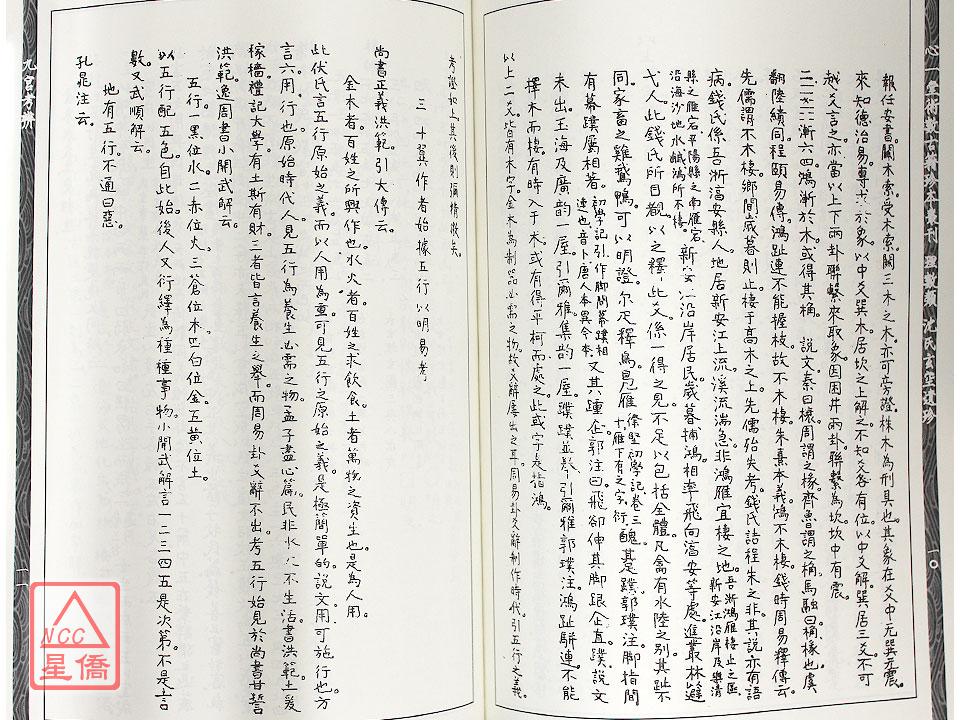 報任安書關木索受木索關三木之木亦可旁證株木為刑具也其象在爻中无巽无震
來知德治易專求於象以中爻巽木居坎之上解之不知爻各有位以中爻解巽居三爻不可
越爻言之亦當以上下兩卦聯繫來取象困困井兩卦聯繫為坎坎中有震
漸六四鴻漸於木或得其桷 說文秦曰榱周謂之椽齊魯謂之桷馬融曰桷椽也虞
翻陸績同程頤易傳鴻趾連不能握枝故不木棲朱熹本義鴻不木棲錢時周易釋傳云
先儒謂不木棲鄉間歲暮則止棲于高木之上先儒殆失考錢氏詰程朱之非其說亦有語
病錢氏係吾浙高安縣人地居新安江上流溪流湍急非鴻雁宜棲之地吾浙鴻雁棲止之區新安江沿岸及樂清
縣之雁宕平陽縣之南雁宕沿海沙地水鹹鴻所不棲新安一沿岸居民歲暮捕鴻相率飛向高安等處進叢林避
弋人此錢氏所目覩以之釋此爻係一得之見不足以包括全體凡禽有水陸之別其趾不
同家畜之雞鵞鴨可以明證尔疋釋鳥鳧雁徐堅初學記卷三十雁下有之字衍醜其蹼郭璞注脚指間
有幕蹼屬相著初學記引作脚間幕蹼相連也音卜唐人本異今本又其踵企郭注曰飛卻伸其脚跟企直蹼說文
未出玉海及廣韵一屋引爾雅集韵一屋蹼蹼並羚引爾雅郭璞注鴻趾駢連不能
擇木而棲有時入于木或有得平柯而處之此或字是指鴻
以上二爻皆有木字金木為制器必需之物故爻辭屢出之耳周易卦爻辭制作時代引五行之義
考證如上其後則彌精微矣
三 十翼作者始據五行以明易考
尚書正義洪範引大傳云
金木者百姓之所興作也水火者百姓之求飲食土者萬物之資生也是為人用
此伏氏言五行原始之義而以人用為重可見五行之原始之義是極簡單的說文用可施行也方
言六用行也原始時代人見五行為養生必需之物孟子盡心篇民非水火不生活書洪範土爰
稼穡禮記大學有土斯有財三者皆言養生之舉而周易卦爻辭不出考五行始見於尚書甘誓
洪範逸周書小開武解云
五行一黑位水二赤位火三蒼位木四白位金五黃位土
以五行配五色自此始後人又衍繹為種種事物小開武解言一二三四五是次第不是言
數又武順解云
地有五行不通曰惡
孔晁注云
心一堂術數古籍珍本叢刊 理數類 沈氏玄空遺珍
一〇
一一
NCC
星僑